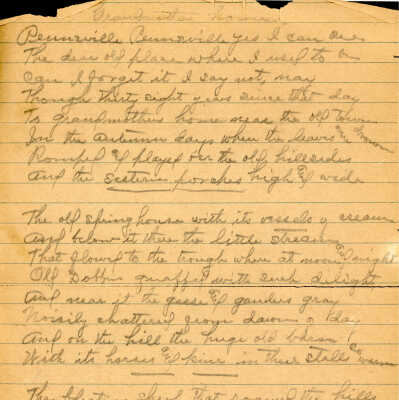 Grandmother's home
Pennsville Pennsville yes I can see
The dear old place where I used to be
Can I forget it I say not, nay
Though thirty eight years since that day
To grandmothers house near the old town
In the autumn days when the leaves are brown
Romped & played over the old hillsides
And the Sistern porches high & wide
The old springhouse with its vessels of cream
And below it there the little stream
That flowed to the trough where at noon & night
Old Dobbin quaffed with such delight
And near it the geese & ganders gray
Noisily chattered from dawn o day
And on the hill the huge old barn
With its horses & kine in their stalls so warm
The that roamed the hills